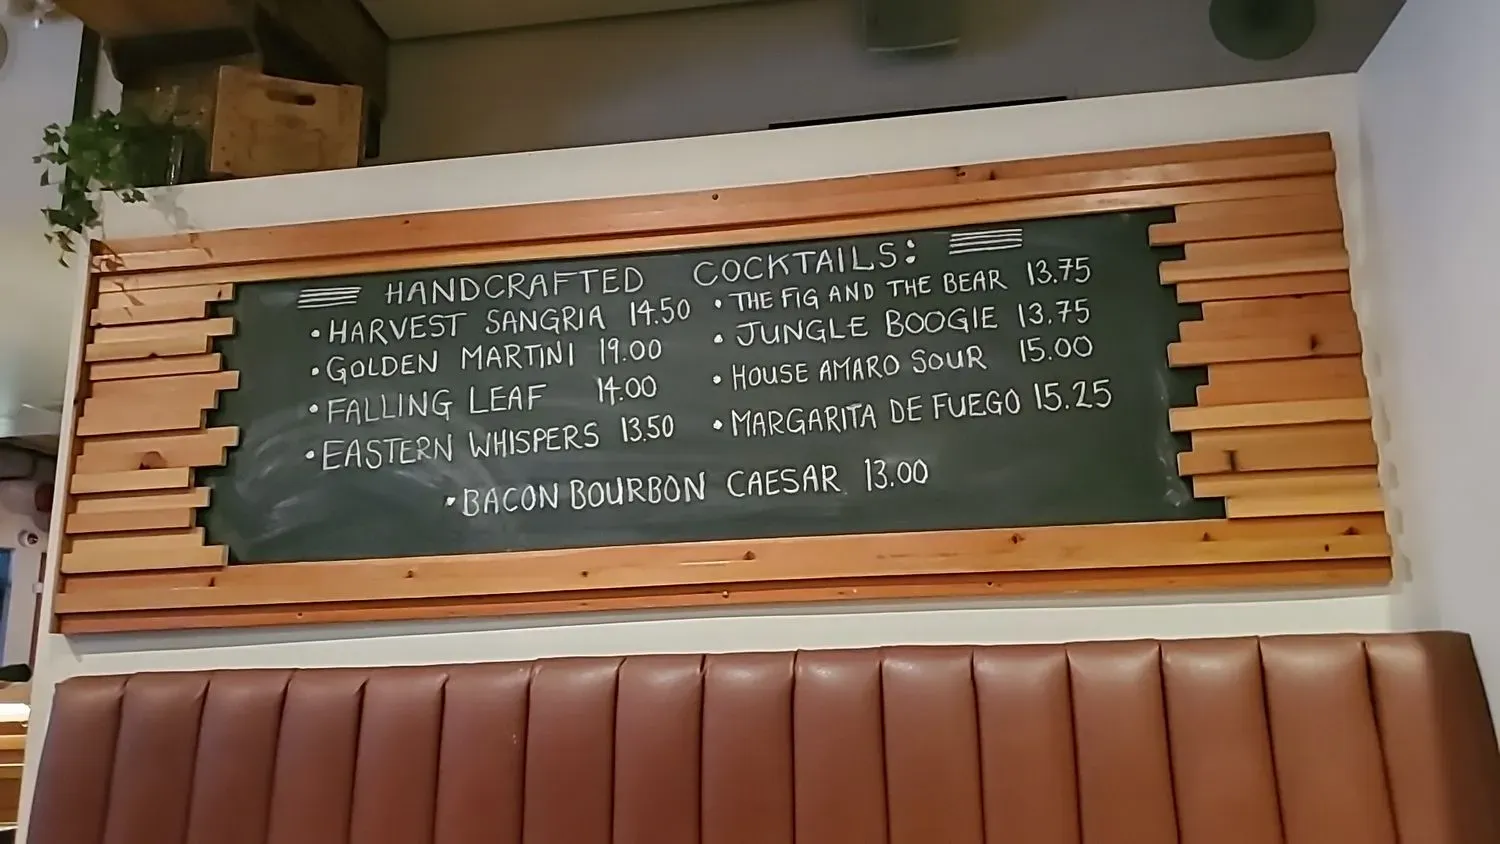 HANDCRAFTED COCKTAILS:
• HARVEST SANGRIA 14.50
• GOLDEN MARTINI 19.00
• FALLING LEAF 14.00
• EASTERN WHISPERS 13.50
• THE FIG AND THE BEAR 13.75
• JUNGLE BOOGIE 13.75
• HOUSE AMARO SOUR 15.00
• MARGARITA DE FUEGO 15.25
• BACON BOURBON CAESAR 13.00